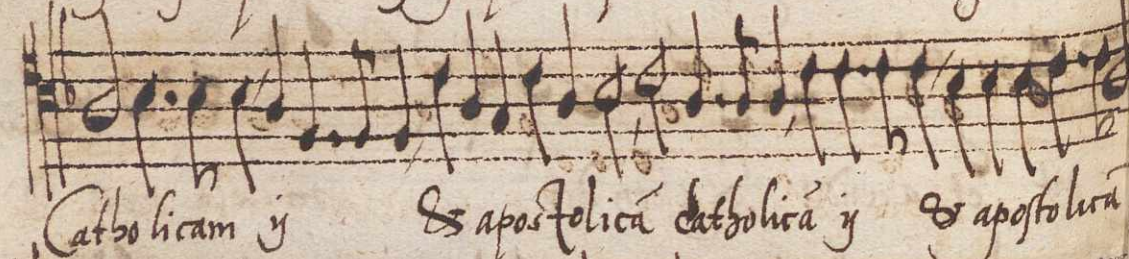 Catholicam ij & apostolicã catholicã ij & apostolicã